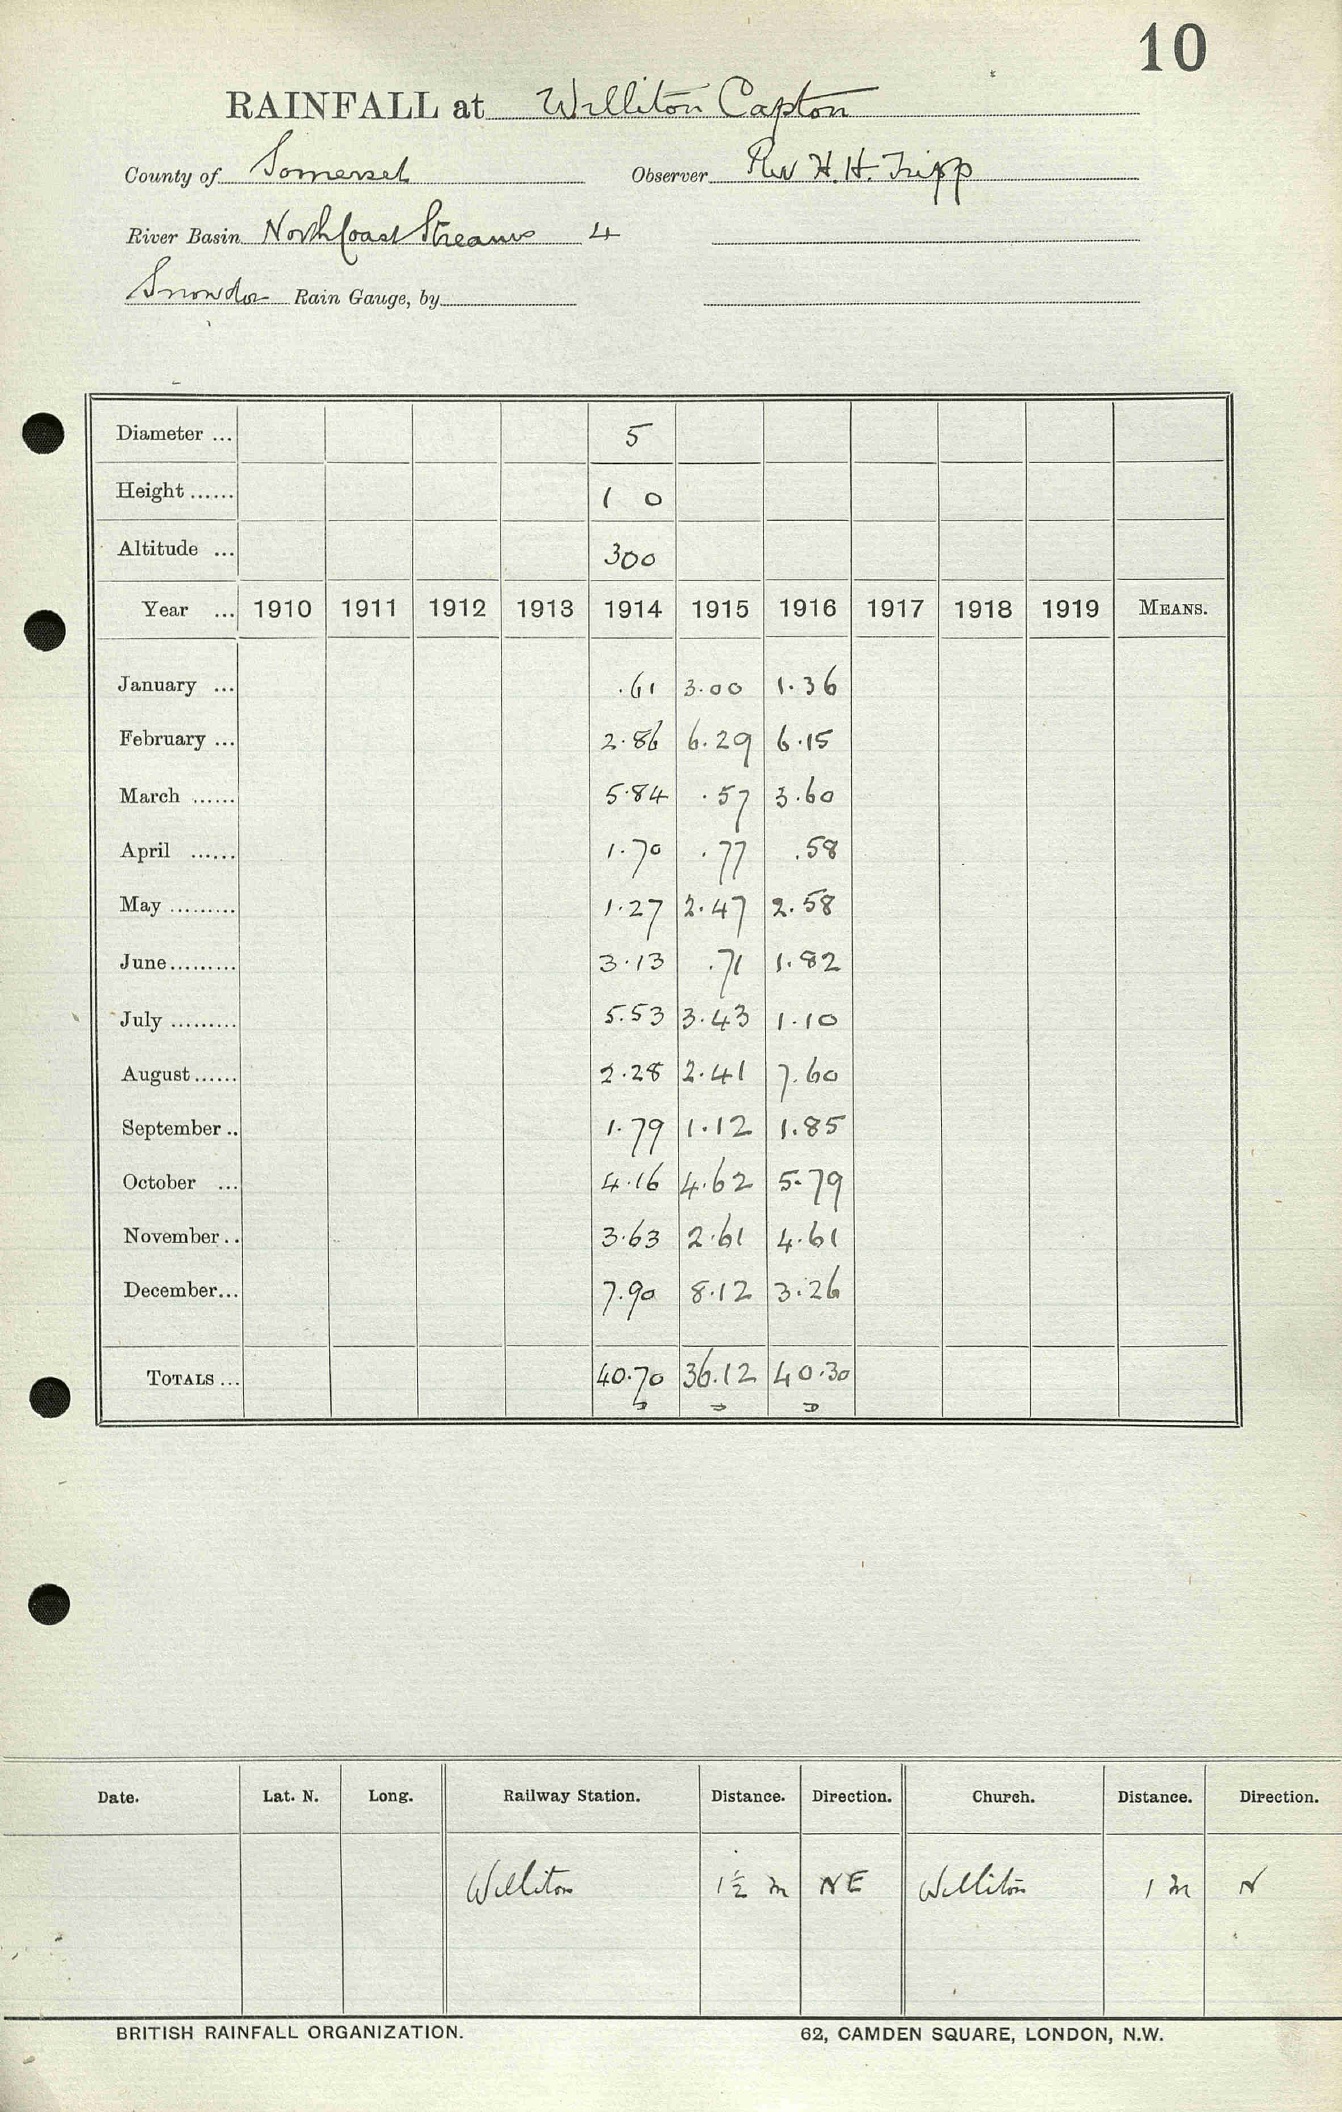 10
RAINFALL at Williton Capton
County of Somerset Observer Rev H. H. Tripp
River Basin North Coast Streams 4
Snowdon Rain Gauge, by
Diameter ... 5
Height ...... 1 0
Altitude ... 300
Year ... 1910 1911 1912 1913 1914 1915 1916 1917 1918 1919 MEANS.
January ... .61 3.00 1.36
February ... 2.86 6.29 6.15
March ...... 5.84 .57 3.60
April ...... 1.70 .77 .58
May ......... 1.27 2.47 2.58
June ......... 3.13 .71 1.82
July ......... 5.53 3.43 1.10
August ...... 2.28 2.41 7.60
September .. 1.79 1.12 1.85
October ... 4.16 4.62 5.79
November .. 3.63 2.61 4.61
December... 7.90 8.12 3.26
TOTALS ... 40.70 36.12 40.30
Date. Lat. N. Long. Railway Station. Distance. Direction. Church. Distance. Direction.
Williton 1½ m NE Williton 1 m N
BRITISH RAINFALL ORGANIZATION. 62, CAMDEN SQUARE, LONDON, N.W.